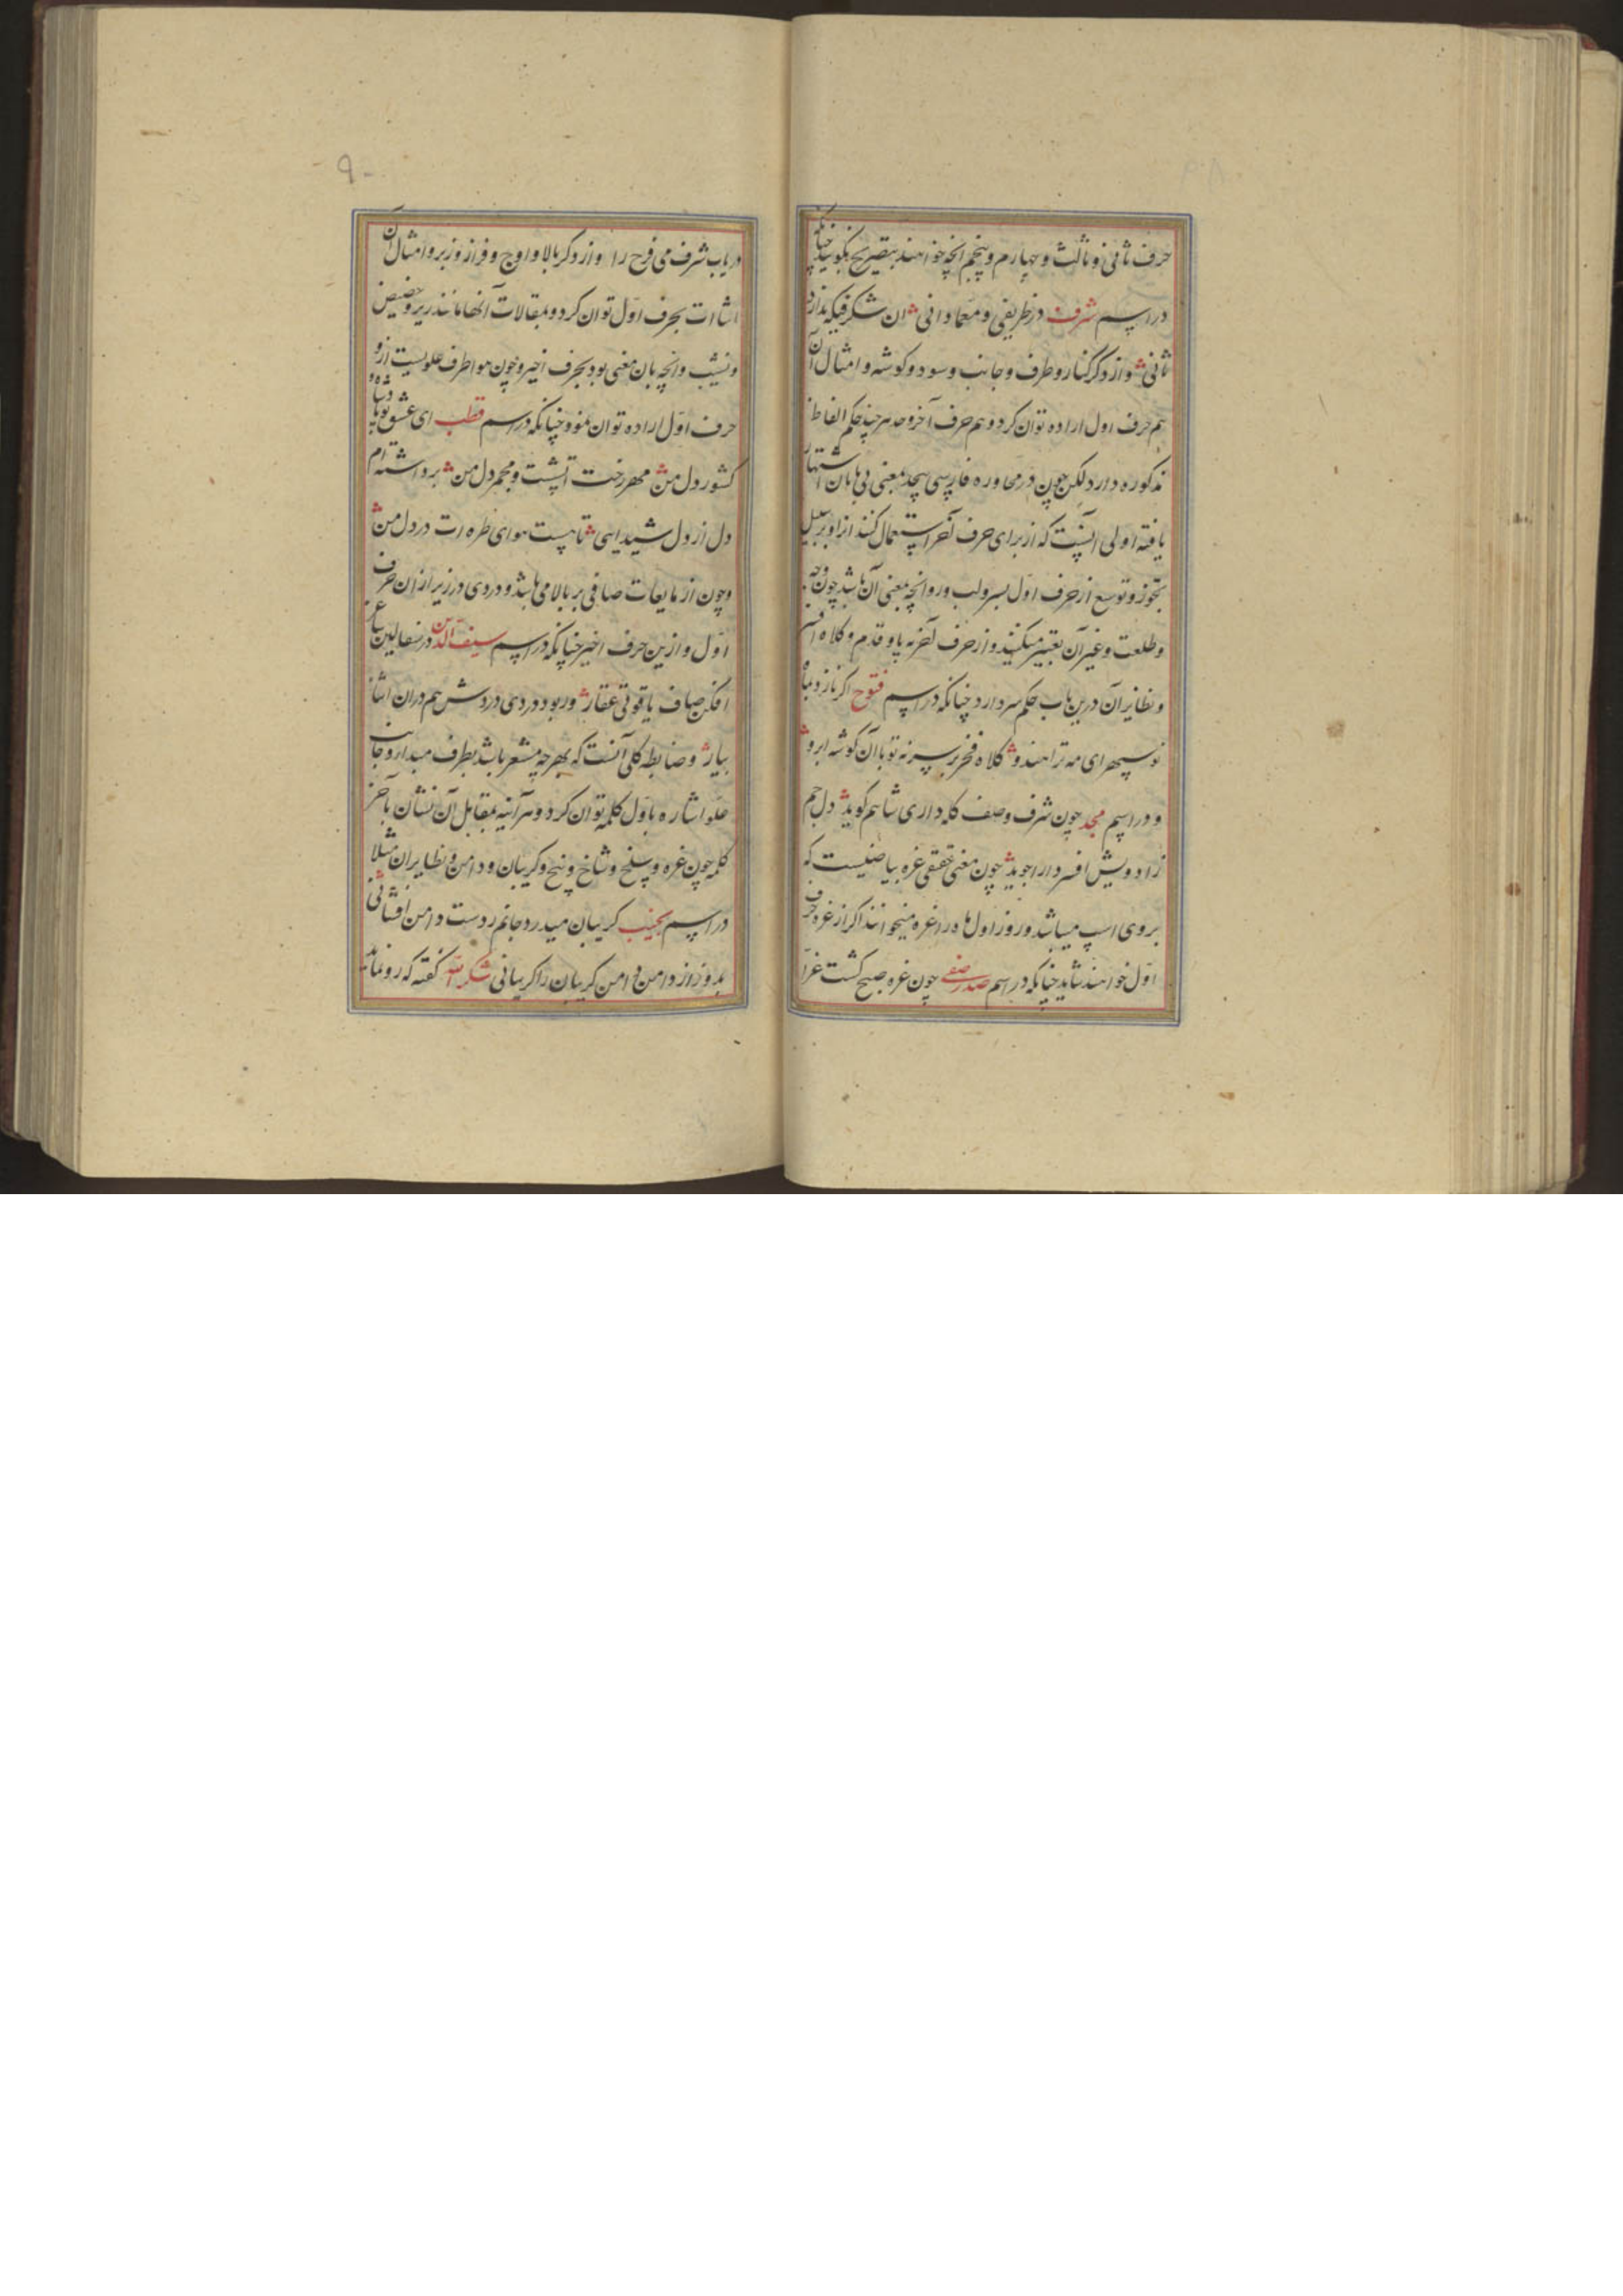 حرف ثانی و ثالث و چهارم و پنجم انچه خواهند بتصریح بکویند چنانکه
در اسم شرف در ظریفی و معما دانی ان شکرفیکه ندارد
ثانی و از ذکر کنار و طرف و جانب و سو و کوشه و امثال آن
هم حرف اول اراده توان کرد و هم حرف آخر و حد هر چند حکم الفاظ
مذکوره دارد لکن چون در محاوره فارسی بیحد بمعنی بی پایان اشتهار
یافته اولی انست که از برای حرف آخر استعمال کنند ازا و بر سبیل
تجوز و توسع از حرف اول بسر و لب و رو و انچه بمعنی آن باشد چون وجه
و طلعت و غیر آن تعبیر میکنند و از حرف آخر به پا و قدم و کلاه افسر
و نظایر آن درین باب حکم سر دارد چنانکه در اسم فتوح اکر تاز و
نوسپهر ای مه ترا هندو کلاه فخر بر سر نه تو با آن کوشه ابرو
و در اسم مجد چون شرف وصف کله داری شاهم کوید دل جم
زاد درویش افسر دارا جوید چون معنی حقیقی غره بیاضیست که
بر روی اسب میباشد و روز اول ماه را غره میخوانند اکر از غره حرف
اول خواهند شاید چنانکه در اسم صدر صفی چون غره صبح کشت غرا
در یاب شرف می فرح را و از ذکر بالا و اوج و فراز و زبر و امثال آن
اشارت بحرف اول توان کرد و بمقابلات آنها مانند زیر و حضیض
و نشیب و انچه بان معنی بود بحرف اخیر و چون هوا طرف علویست ازو
حرف اول اراده توان نمود چنانکه در اسم قطب ای عشق تو پادشاه و
کشور دل من مهر رخت اتشست و مجمر دل من برداشته ام
دل از دل شیدایی تا هست هوای طره ات در دل من
و چون از مایعات صافی بر بالا می باشد و دردی در زیر از ان حرف
اول و ازین حرف اخیر چنانکه در اسم سیف الدین در سفالین ساغر
افکن صاف یاقوتی عقار ور بود دردی دردش هم دران اشا
بیار و ضابطه کلی آنست که بهر چه مشعر باشد بطرف مبدا و جانب
علو اشاره باول کلمه توان کرد و هر آینه بمقابل آن نشان بآخر
کلمه چون غره و سلخ و شاخ و بیخ و کریبان و دامن و نظایر ان مثلا
در اسم نجیب کریبان میدرد جانم ز دست دامن افشانی
بدوز از دامن دامن کریبان را کریبانی شکر الله کفته که رو نماید